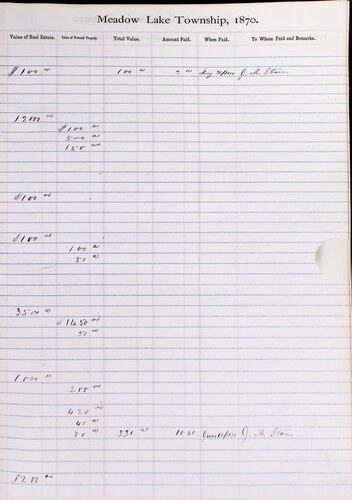 Meadow Lake Township, 1870.
Value of Real Estate. Value of Personal Property. Total Value. Amount Paid. When Paid. To Whom Paid and Remarks.
$100 00 100 00 J. M. Stain
1200 00
$100 00
500 00
150 00
$100 00
$100 00
100 00
50 00
3500 00
1450 00
50 00
1000 00
200 00
420 00
40 00
70 00 530 00 11 60 J. M. Stain
$200 00